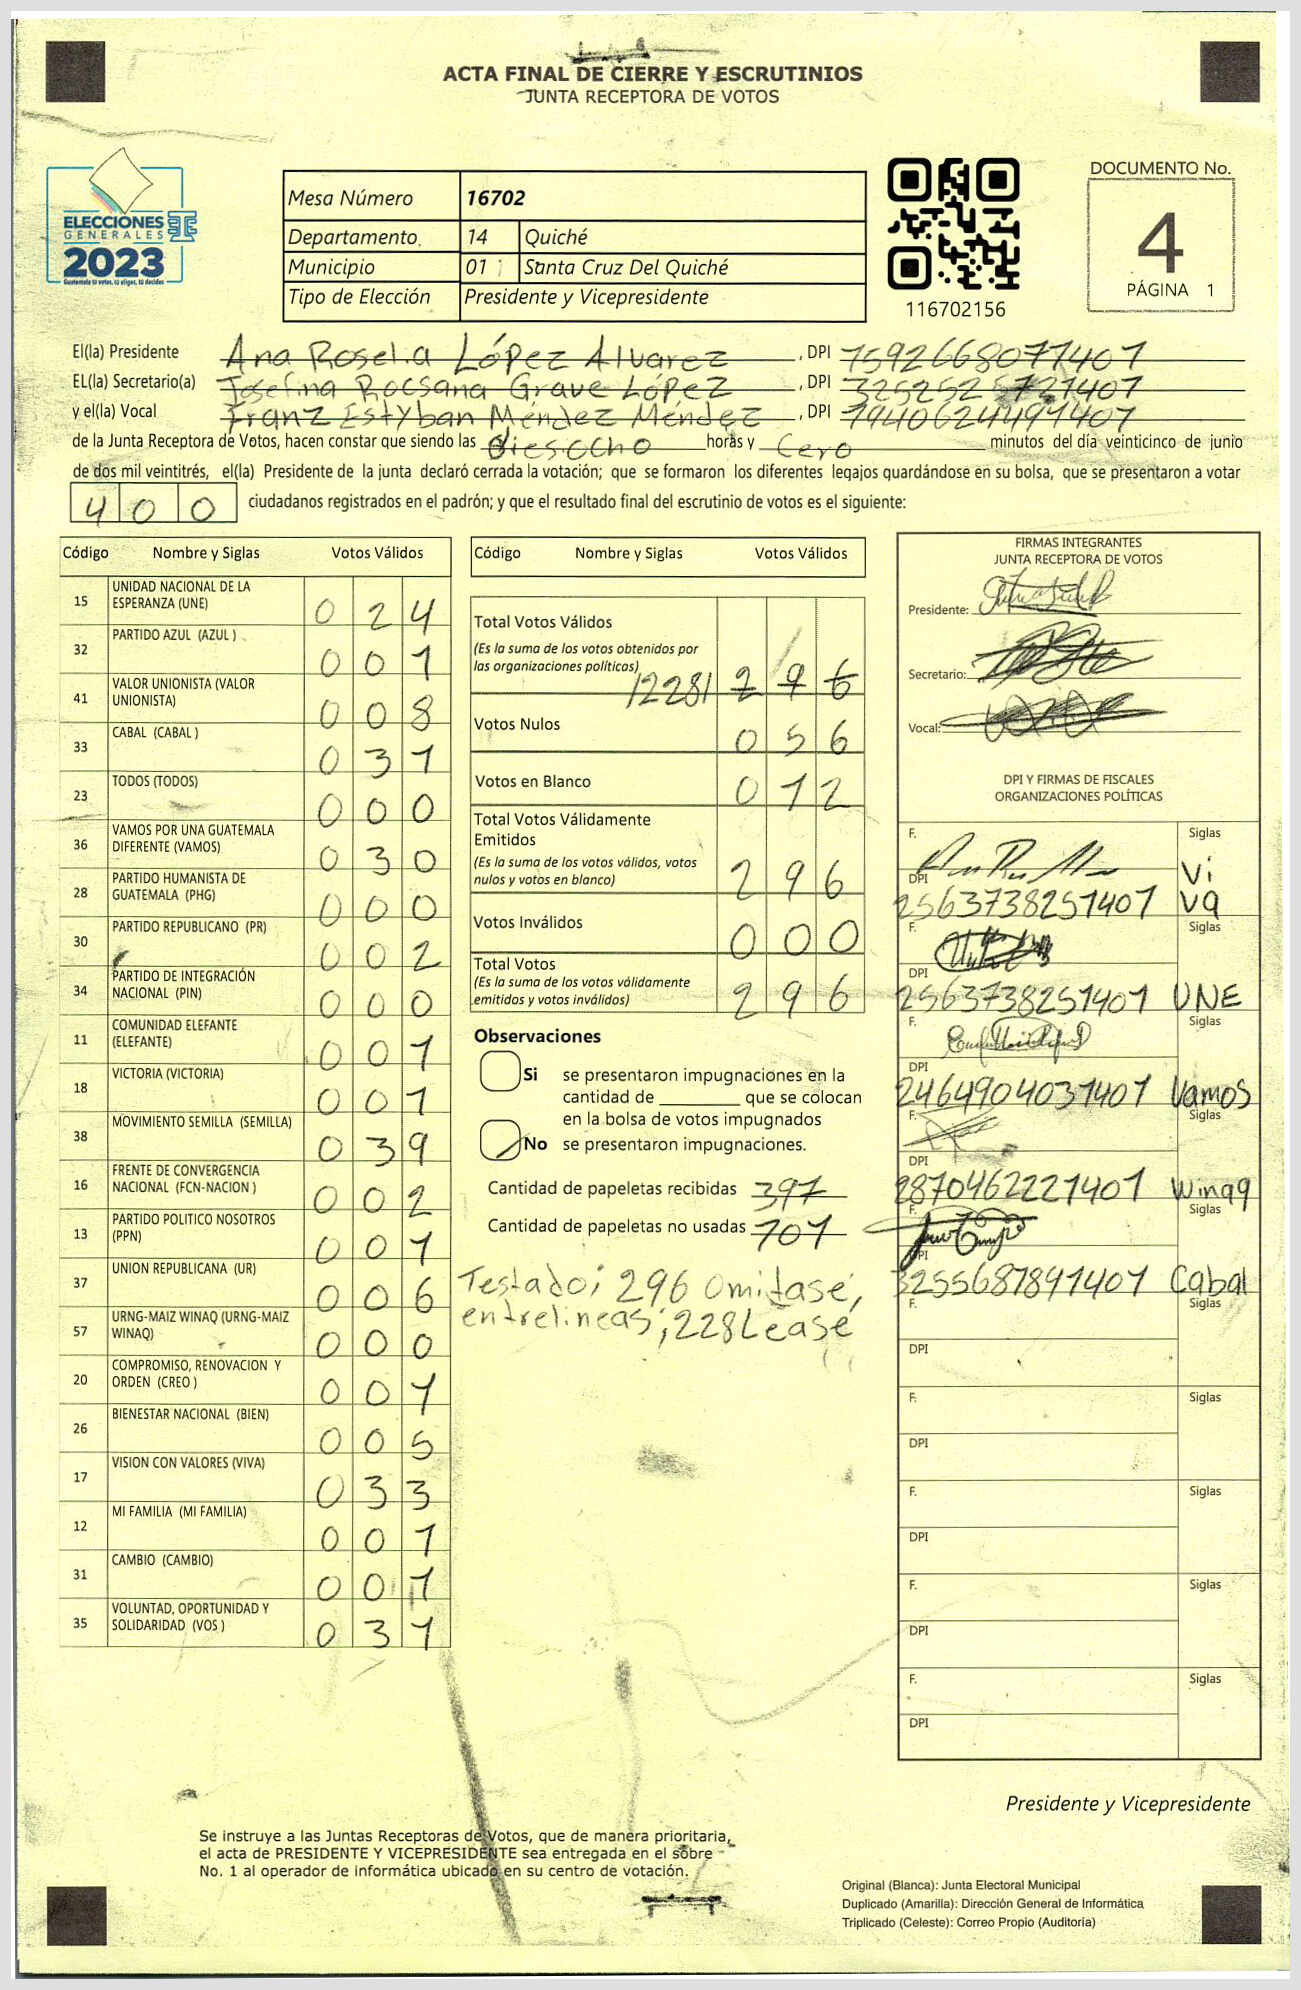 ACTA FINAL DE CIERRE Y ESCRUTINIOS
JUNTA RECEPTORA DE VOTOS
ELECCIONES
GENERALES
2023
Guatemala tú votas, tú eliges, tú decides
Mesa Número 16702
Departamento 14 Quiché
Municipio 01 Santa Cruz Del Quiché
Tipo de Elección Presidente y Vicepresidente
116702156
DOCUMENTO No.
4
PÁGINA 1
El(la) Presidente Ana Roselia López Alvarez, DPI 1592668071407
EL(la) Secretario(a) Josefina Rocsana Grave López, DPI
y el(la) Vocal Franz Estyban Méndez Méndez, DPI
de la Junta Receptora de Votos, hacen constar que siendo las diesocho horas y cero minutos del día veinticinco de junio
de dos mil veintitrés, el(la) Presidente de la junta declaró cerrada la votación; que se formaron los diferentes legajos guardándose en su bolsa, que se presentaron a votar
400 ciudadanos registrados en el padrón; y que el resultado final del escrutinio de votos es el siguiente:
Código Nombre y Siglas Votos Válidos
15 UNIDAD NACIONAL DE LA ESPERANZA (UNE) 024
32 PARTIDO AZUL (AZUL ) 001
41 VALOR UNIONISTA (VALOR UNIONISTA) 008
33 CABAL (CABAL ) 031
23 TODOS (TODOS) 000
36 VAMOS POR UNA GUATEMALA DIFERENTE (VAMOS) 030
28 PARTIDO HUMANISTA DE GUATEMALA (PHG) 000
30 PARTIDO REPUBLICANO (PR) 002
34 PARTIDO DE INTEGRACIÓN NACIONAL (PIN) 000
11 COMUNIDAD ELEFANTE (ELEFANTE) 001
18 VICTORIA (VICTORIA) 001
38 MOVIMIENTO SEMILLA (SEMILLA) 039
16 FRENTE DE CONVERGENCIA NACIONAL (FCN-NACION ) 002
13 PARTIDO POLITICO NOSOTROS (PPN) 001
37 UNION REPUBLICANA (UR) 006
57 URNG-MAIZ WINAQ (URNG-MAIZ WINAQ) 000
20 COMPROMISO, RENOVACION Y ORDEN (CREO ) 001
26 BIENESTAR NACIONAL (BIEN) 005
17 VISION CON VALORES (VIVA) 033
12 MI FAMILIA (MI FAMILIA) 001
31 CAMBIO (CAMBIO) 001
35 VOLUNTAD, OPORTUNIDAD Y SOLIDARIDAD (VOS ) 031
Código Nombre y Siglas Votos Válidos
Total Votos Válidos
(Es la suma de los votos obtenidos por
las organizaciones políticas) /228/ 296
Votos Nulos 056
Votos en Blanco 012
Total Votos Válidamente
Emitidos
(Es la suma de los votos válidos, votos
nulos y votos en blanco) 296
Votos Inválidos 000
Total Votos
(Es la suma de los votos válidamente
emitidos y votos inválidos) 296
Observaciones
Si se presentaron impugnaciones en la
cantidad de ________ que se colocan
en la bolsa de votos impugnados
No se presentaron impugnaciones.
Cantidad de papeletas recibidas 397
Cantidad de papeletas no usadas 101
Testado; 296 omitase,
entrelineas; 228 Lease
FIRMAS INTEGRANTES
JUNTA RECEPTORA DE VOTOS
Presidente:
Secretario:
Vocal:
DPI Y FIRMAS DE FISCALES
ORGANIZACIONES POLÍTICAS
F. Siglas
DPI Vi
2563738251407 va
F. Siglas
DPI
2563738251401 UNE
F. Siglas
DPI
2464904031401 Vamos
F. Siglas
DPI
2870462221401 Winaq
F. Siglas
DPI
3255687891401 Cabal
F. Siglas
DPI
F. Siglas
DPI
F. Siglas
DPI
F. Siglas
DPI
F. Siglas
DPI
Presidente y Vicepresidente
Se instruye a las Juntas Receptoras de Votos, que de manera prioritaria,
el acta de PRESIDENTE Y VICEPRESIDENTE sea entregada en el sobre
No. 1 al operador de informática ubicado en su centro de votación.
Original (Blanca): Junta Electoral Municipal
Duplicado (Amarilla): Dirección General de Informática
Triplicado (Celeste): Correo Propio (Auditoría)